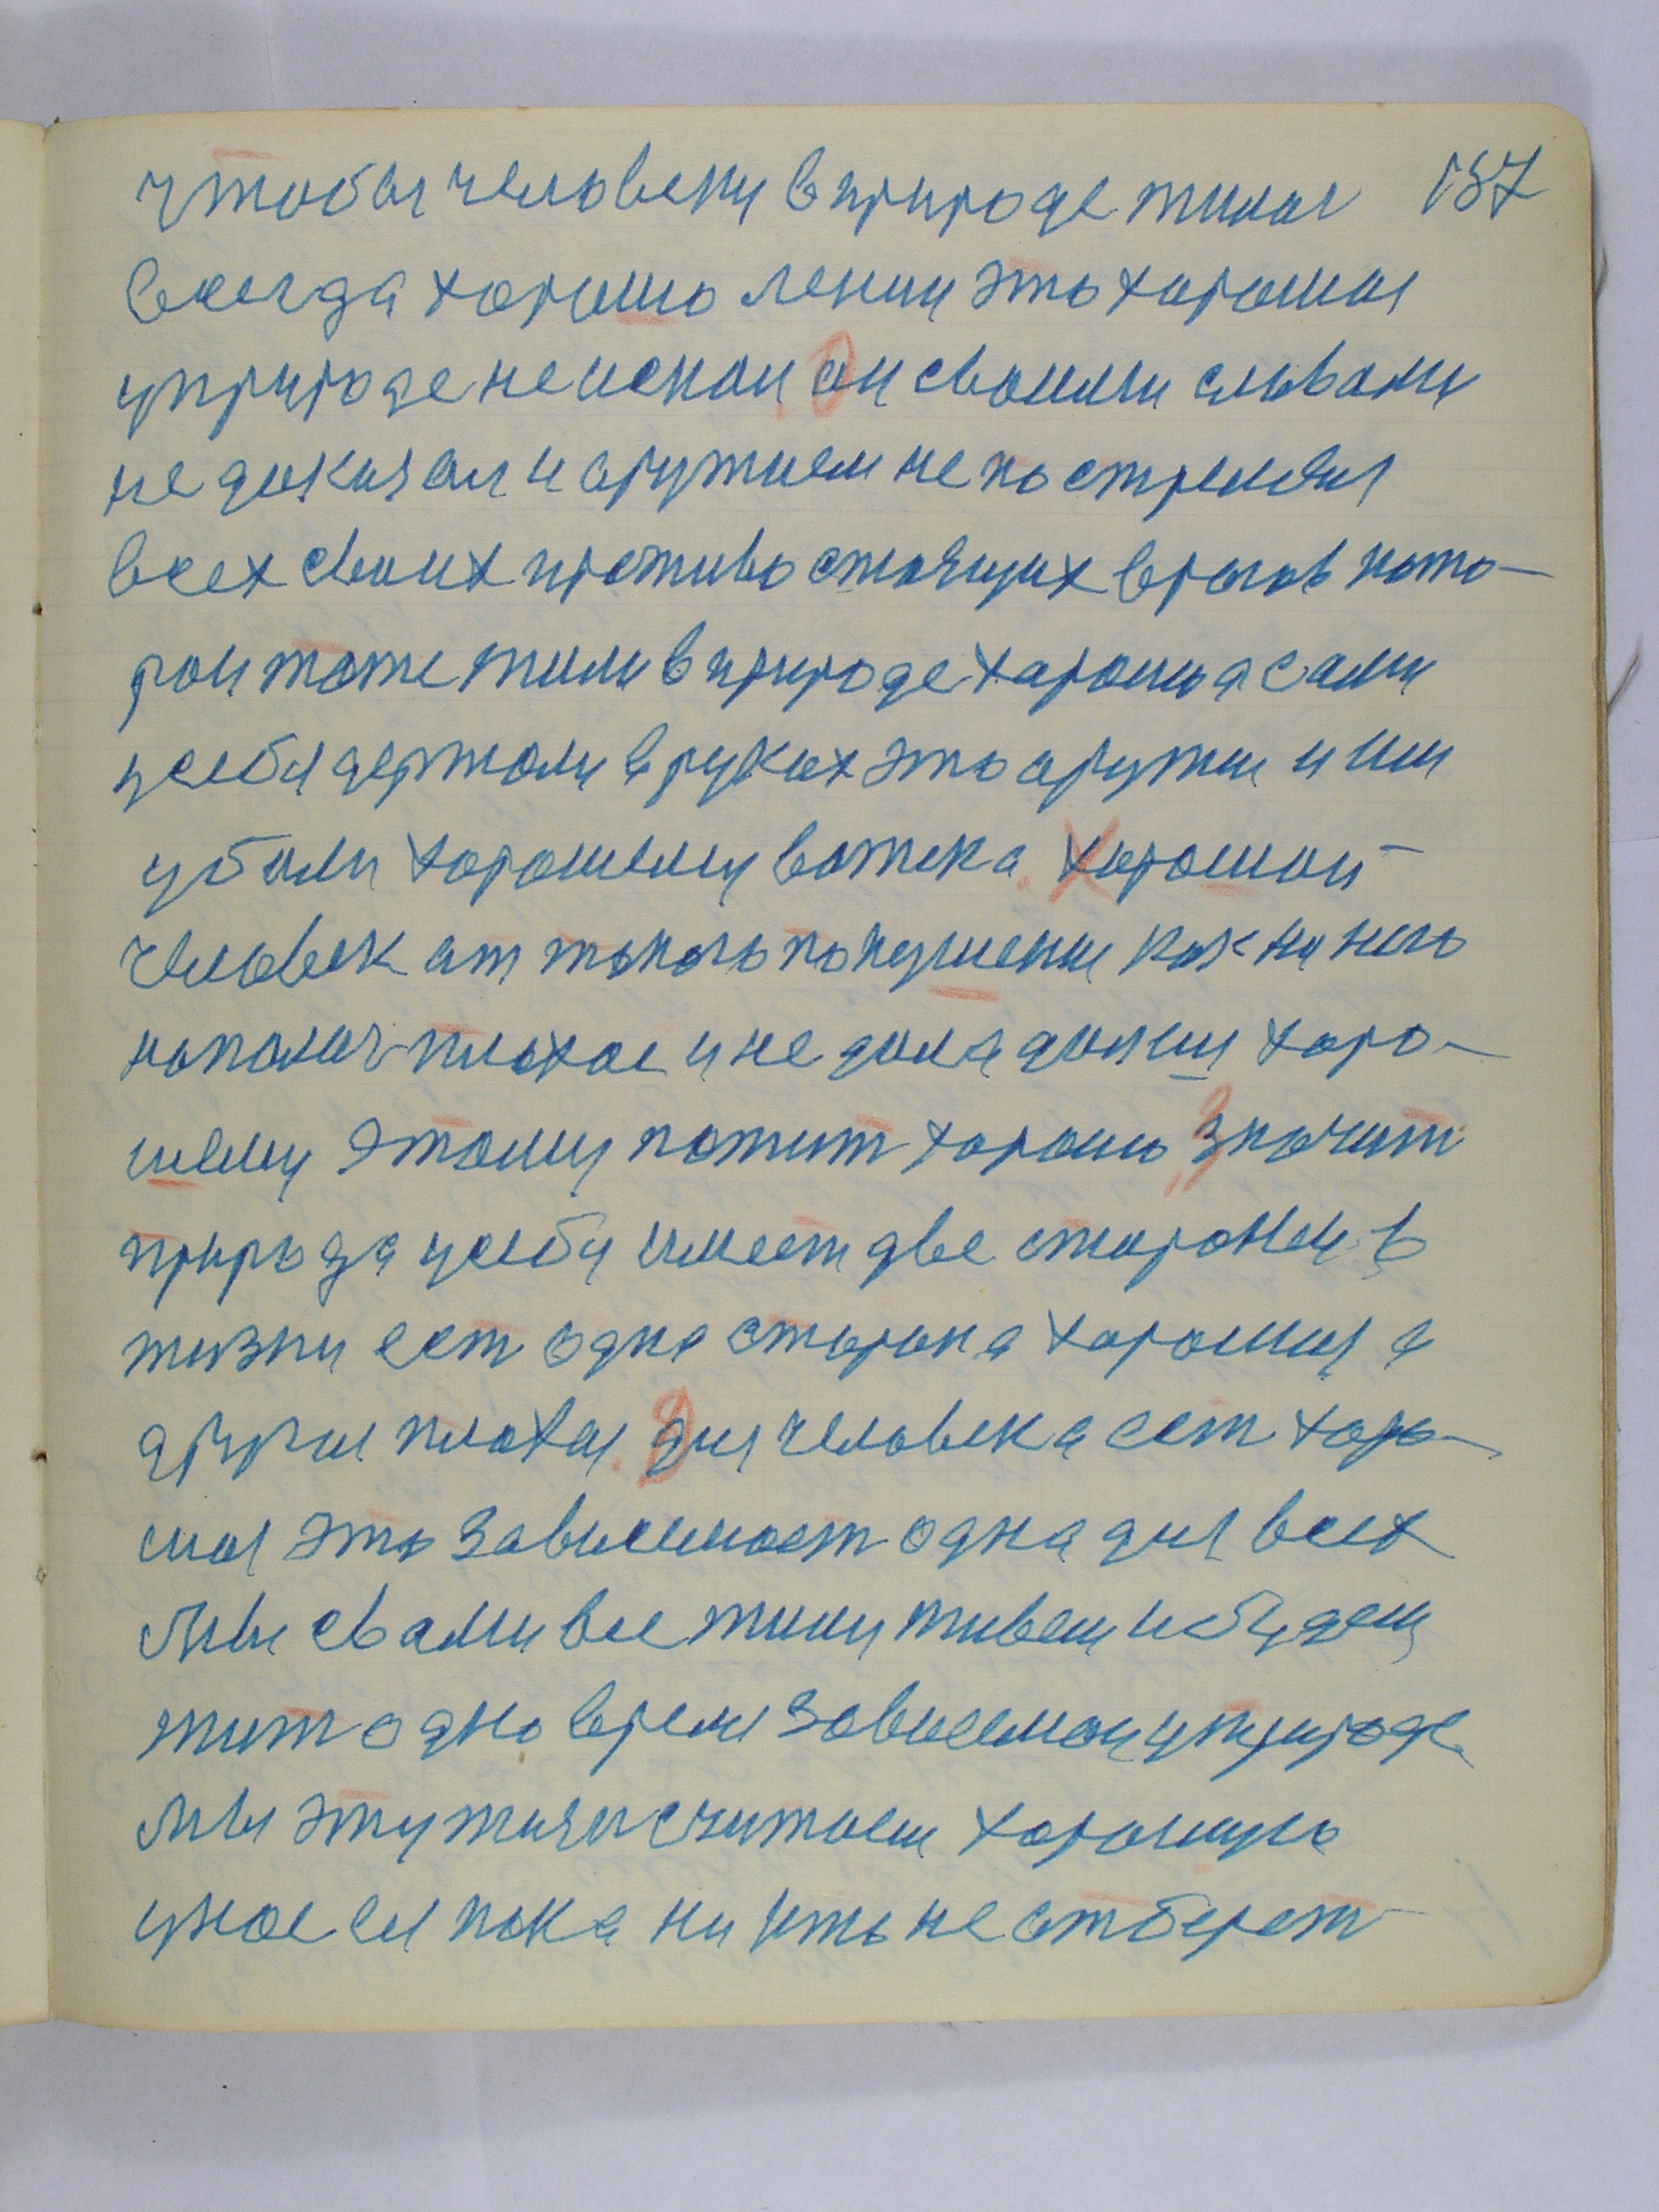 чтобы человеку в природе жилос 187
всегда хорошо ленин это хорошая
у природе не искал он своими словами
не доказал и аружием не пострелял
всех своих противостоящих врагов кото-
рои тоже жили в природе харошо а сами
у себя держали в руках это аружие и им
убили хорошему вожека. Хорошой
человек ат такого покушение как на него
напалоч плохое и не дала далши харо-
шему этому пожит харошо значит
природа у себя имеет две стораны в
жизни ест одна старана харошая а
другая плохая. Для человека ест харо-
шая это зависемаст одна для всех
Мы с вами все жили живем и будем
жит одно время зависемои у природе
Мы эту жизн считаем харошую
у нас ея пока ни кто не атберет